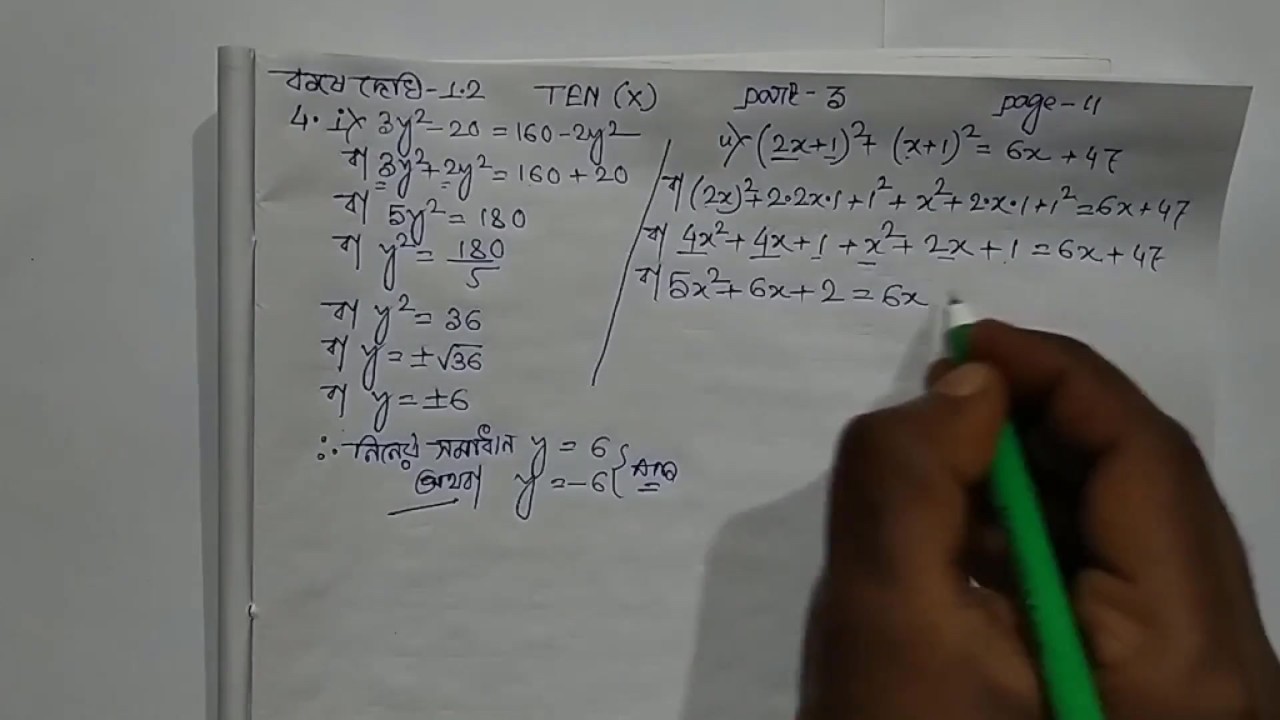 কষে দেখি-1.2 TEN (X) part-3 page-11
4. i) 3y²-20=160-2y²
বা 3y²+2y²=160+20
বা 5y²=180
বা y²=180/5
বা y²=36
বা y=±√36
বা y=±6
∴ নির্ণেয় সমাধান y=6
অথবা y=-6 } Ans
ii) (2x+1)²+(x+1)²=6x+47
বা (2x)²+2·2x·1+1²+x²+2·x·1+1²=6x+47
বা 4x²+4x+1+x²+2x+1=6x+47
বা 5x²+6x+2=6x